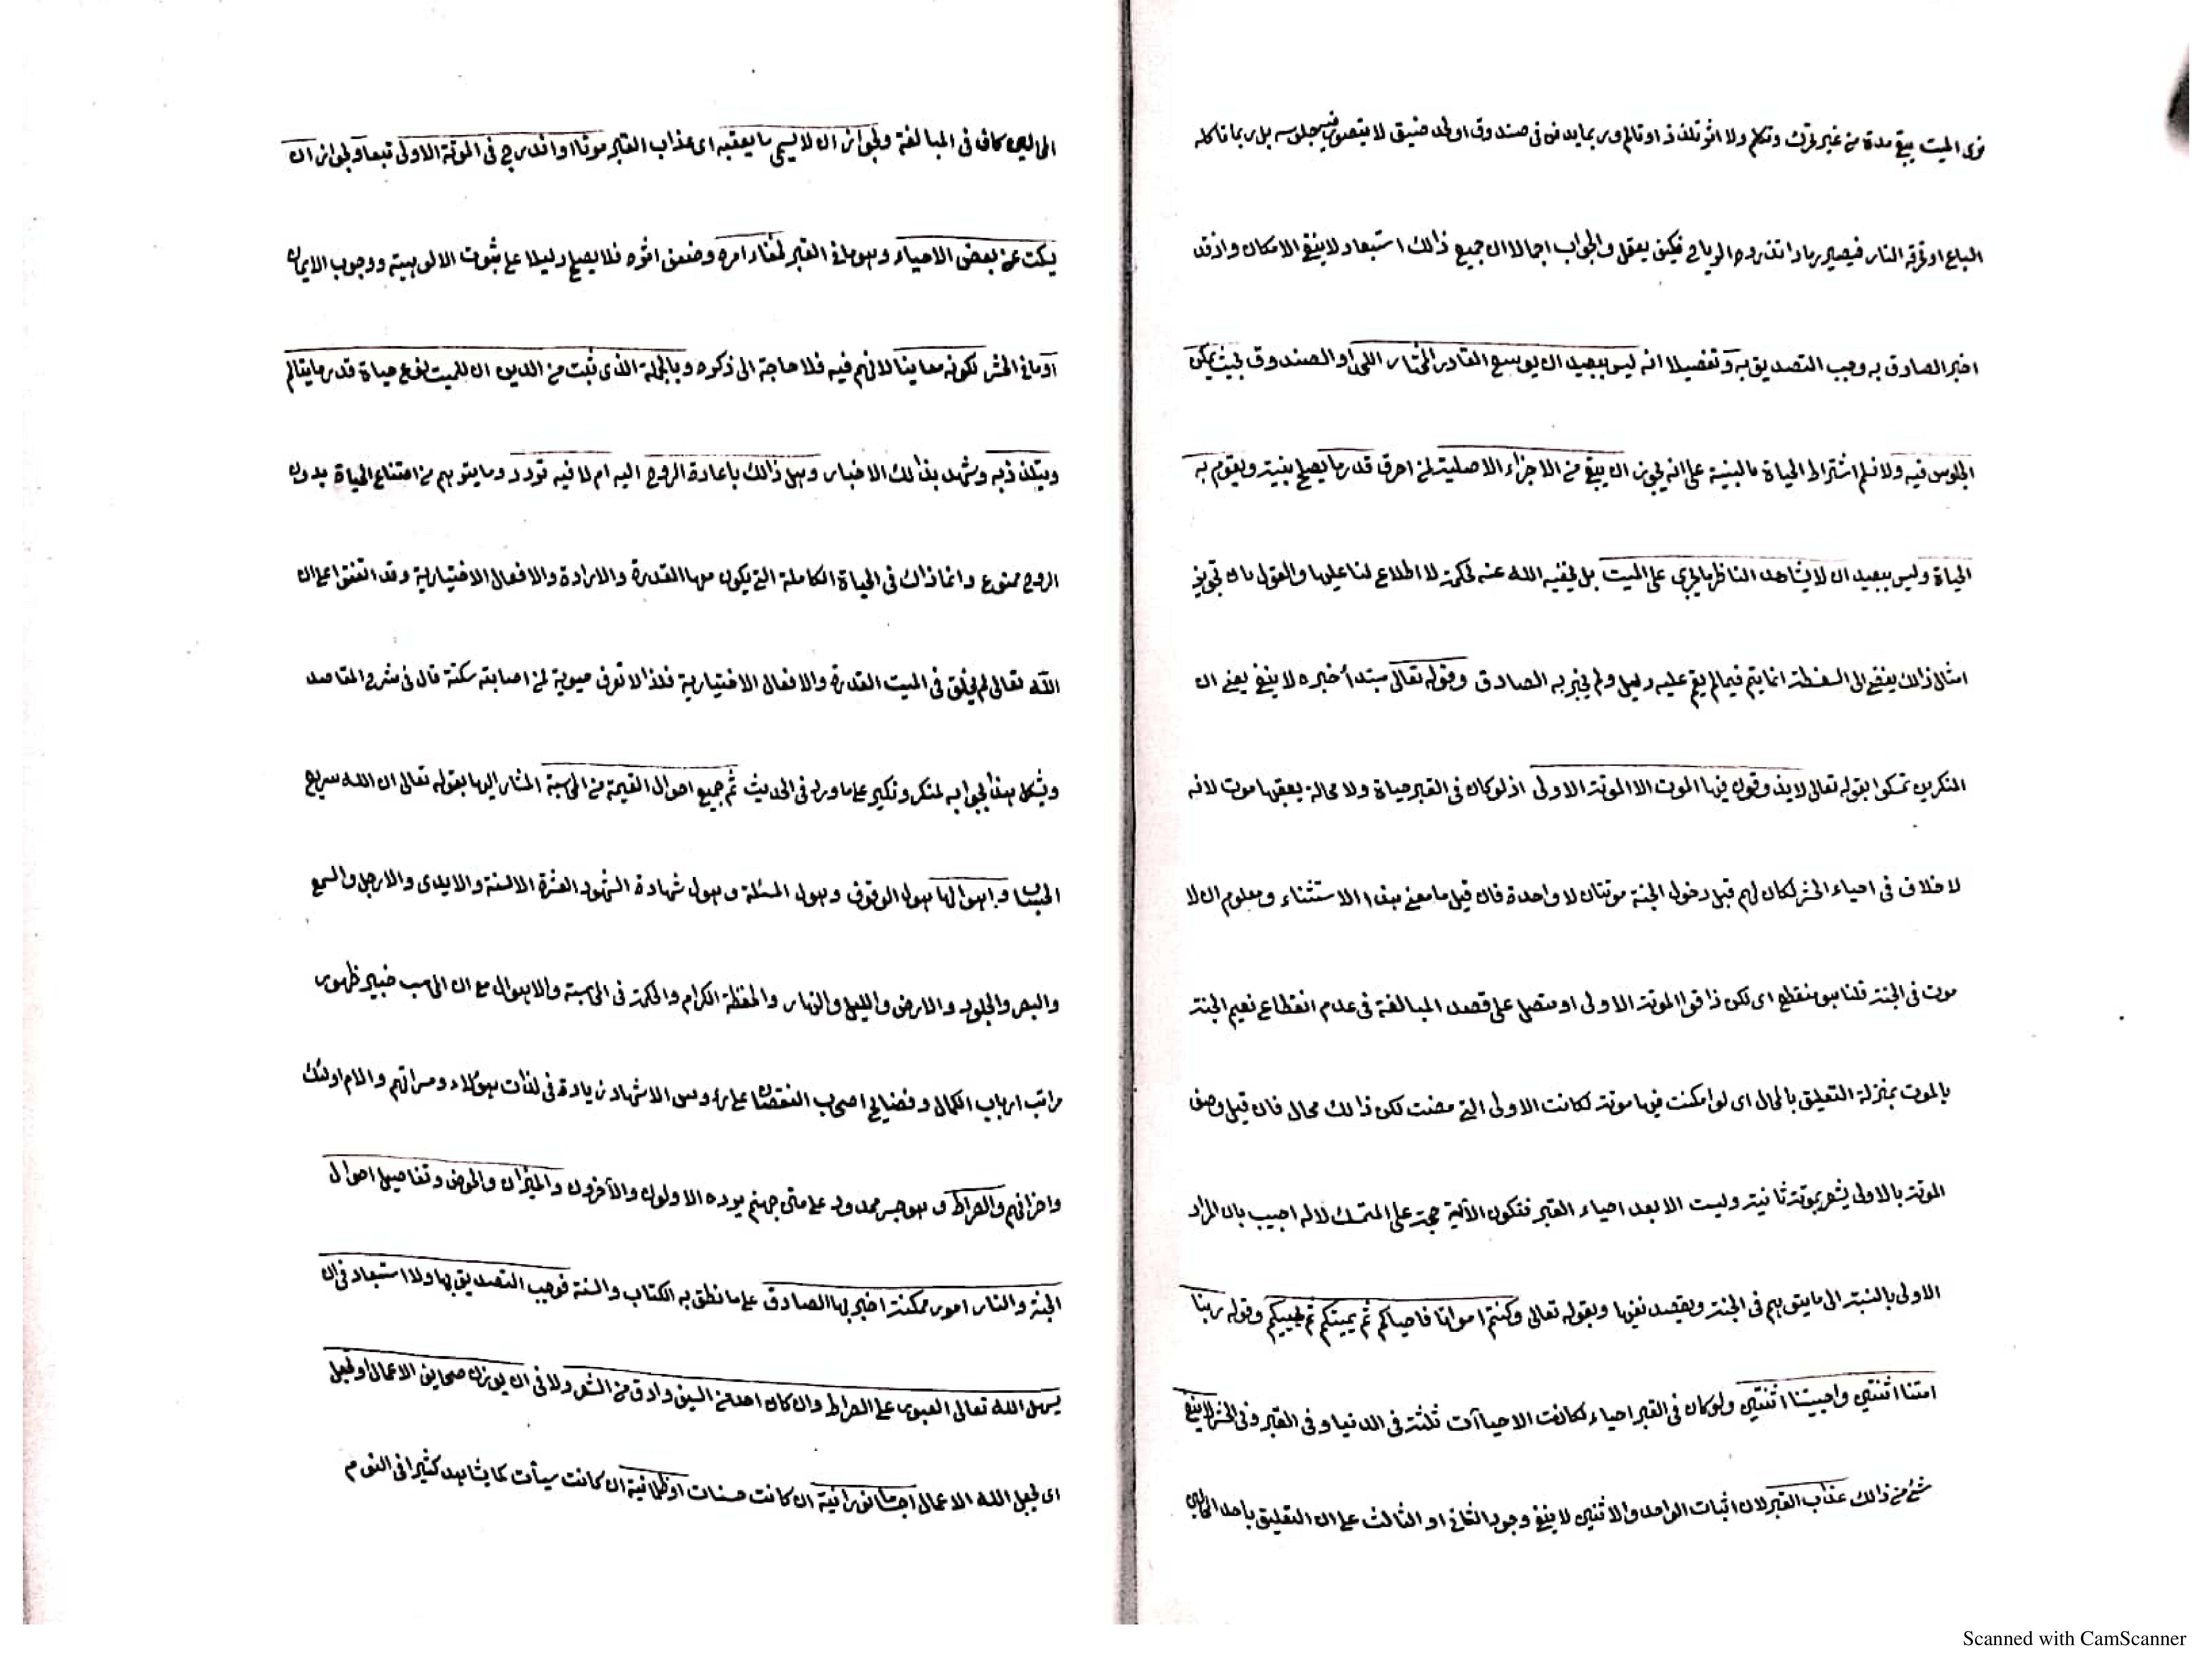 نرى الميت يبقى مدة من غير تحرك وتكلم ولا اثر تلذذ او تالم وربما يدفن فى صندوق او لحد ضيق لا يتصور فيه جلوسه بل ربما تاكله
السباع او تحرقه النار فيصير رمادا تذروه الرياح فكيف يعقل والجواب اجمالا ان جميع ذالك استبعاد لا ينفى الامكان واذ قد
اخبر الصادق به وجب التصديق به وتفصيلا انه ليس ببعيد ان يوسع القادر المختار اللحد او الصندوق بحيث يمكن
الجلوس فيه ولا نسلم اشتراط الحياة بالبنية على انه يجوز ان يبقى من الاجزاء الاصلية لمن احرق قدر ما يصلح بنية ويقوم به
الحياة وليس ببعيد ان لا يشاهد الناظر ما يجرى على الميت بل يخفيه الله عنه لحكمة لا اطلاع لنا عليها والقول بان تجويز
امثال ذالك يفضى الى السفسطة انما يتم فيما لم يقم عليه دليل ولم يخبر به الصادق وقوله تعالى مبتدأ خبره لا ينفى يعنى ان
المنكرين تمسكوا بقوله تعالى لا يذوقون فيها الموت الا الموتة الاولى اذ لو كان فى القبر حياة ولا محالة يعقبها موت لانه
لا خلاف فى احياء الحشر لكان لهم قبل دخول الجنة موتتان لا واحدة فان قيل ما معنى هذا الاستثناء ومعلوم ان لا
موت فى الجنة قلنا هو منقطع اى لكن ذاقوا الموتة الاولى او متصل على قصد المبالغة فى عدم انقطاع نعيم الجنة
بالموت بمنزلة التعليق بالمحال اى لو امكنت فيها موتة لكانت الاولى التى مضت لكن ذالك محال فان قيل وصف
الموتة بالاولى يشعر بموتة ثانية وليست الا بعد احياء القبر فتكون الآية حجة على المتمسك لا له اجيب بان المراد
الاولى بالنسبة الى ما يتوهم فى الجنة ويقصد نفيها وبقوله تعالى وكنتم امواتا فاحياكم ثم يميتكم ثم يحييكم وقوله ربنا
امتنا اثنتين واحييتنا اثنتين ولو كان فى القبر احياء لكانت الاحياآت ثلثة فى الدنيا وفى القبر وفى الحشر لا ينفى
شئ من ذالك عذاب القبر لان اثبات الواحد والاثنين لا ينفى وجود الثانى او الثالث على ان التعليق باحد المحالين
المحالين كاف فى المبالغة ولجواز ان لا يسمى ما يعقبه اى عذاب القبر موتا او اندرج فى الموتة الاولى تبعا ولجواز ان
يسكت عن بعض الاحياء وهو ما فى القبر لخفاء امره وضعف اثره فلا يصلح دليلا على ثبوت الالوهية ووجوب الايمان
او ما فى الحشر لكونه معاينا لانهم فيه فلا حاجة الى ذكره وبالجملة الذى ثبت من الدين ان للميت نوع حياة قدر ما يتالم
ويتلذذ به وشهد بذالك الاخبار وهل ذالك باعادة الروح اليه ام لا فيه تردد وما يتوهم من امتناع الحياة بدون
الروح ممنوع وانما ذاك فى الحياة الكاملة التى يكون معها القدرة والارادة والافعال الاختيارية وقد اتفقوا على ان
الله تعالى لم يخلق فى الميت القدرة والافعال الاختيارية فلذا لا تعرف حيوته لمن اصابته سكتة قال فى شرح المقاصد
ويشكل هذا بجوابه لمنكر ونكير على ما ورد فى الحديث ثم جميع احوال القيمة من المحاسبة المشار اليها بقوله تعالى ان الله سريع
الحساب واهوالها هول الوقوف وهول المسئلة وهول شهادة الشهود العشرة الالسنة والايدى والارجل والسمع
والبصر والجلود والارض والليل والنهار والحفظة الكرام والحكمة فى المحاسبة والاهوال مع ان المحاسب خبير ظهور
مراتب ارباب الكمال وفضايح اصحاب النقصان على رؤوس الاشهاد زيادة فى لذات هؤلاء ومسراتهم والام اولئك
واحزانهم والصراط وهو جسر ممدود على متن جهنم يرده الاولون والآخرون والميزان والحوض وتفاصيل احوال
الجنة والنار امور ممكنة اخبر بها الصادق على ما نطق به الكتاب والسنة فوجب التصديق بها ولا استبعاد فى ان
يسهل الله تعالى العبور على الصراط وان كان احد من السيف وادق من الشعر ولا فى ان يوزن صحايف الاعمال او يجعل
اى يجعل الله الاعمال اجساما نورانية ان كانت حسنات او ظلمانية ان كانت سيأت كما يشاهد كثيرا فى النوم
Scanned with CamScanner